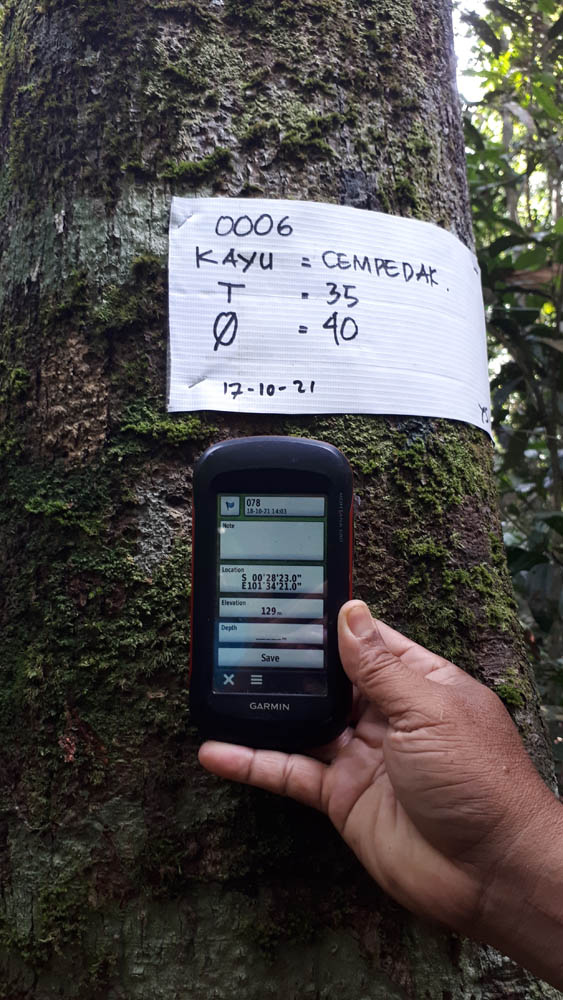 0006
KAYU = CEMPEDAK.
T = 35
Ø = 40
17-10-21
078
18-10-21 14:03
Note
Location
S 00°28'23.0"
E101°34'21.0"
Elevation
129 m
Depth
______ m
Save
GARMIN